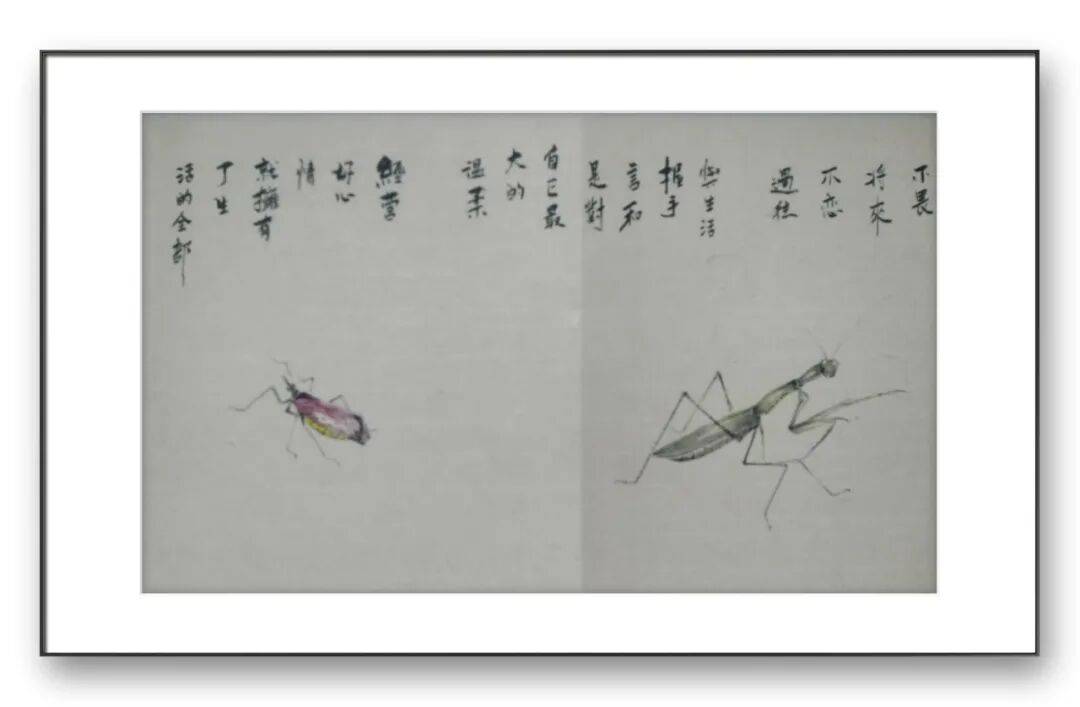 不畏
将來
不恋
過往
生活
握手
言和
是對
自己最
大的
温柔
經营
好心
情
就擁有
了生
活的全部